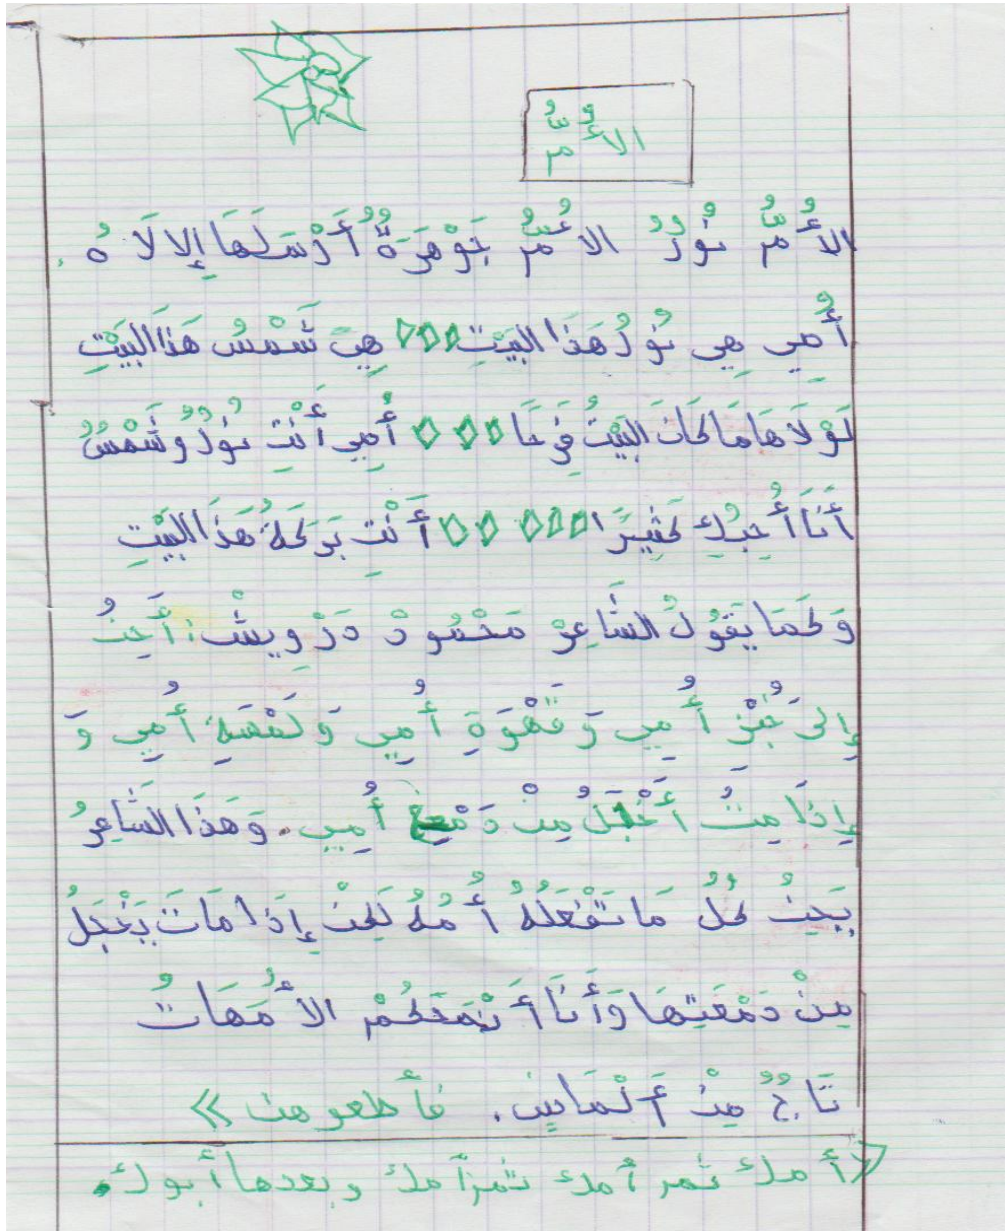 الأُمُّ
الأُمُّ نُورُ الأُمُّ جَوْهَرَةٌ أَرْسَلَهَا إِلا لَاهُ.
أُمِي هِي نُورُ هَذَا البَيْتِ هِيَ شَمْسُ هَذَا البَيْتِ
لَوْ لَاهَا مَا كَانَ البَيْتُ فَرِحًا أُمِي أَنْتِ نُورٌ وَشَمْسٌ
أَنَا أُحِبُكِ كَثِيرًا أَنْتِ بَرَكَةُ هَذَا البَيْتِ
وَكَمَا يَقُولُ الشَاعِرْ مَحْمُودْ دَرْوِيشْ: أَحِنُ
إِلىَ خُبْزِ أُمِي وَقَهْوَةِ أُمِي وَلَمْسَةِ أُمِي وَ
إِذَا مِتُ أَخْجَلُ مِنْ دَمْعِ أُمِي. وَهَذَا الشَاعِرُ
يَحِنُ كُلُ مَا تَفْعَلُهُ أُمُهُ لَكِنْ إِذَا مَاتَ يَخْجَلُ
مِنْ دَمْعَتِهَا وَأَنَا أَنْصَحَكُمْ الأُمَهَاتُ
تَاجٌ مِنْ أَلْمَاسٍ. فأطعوهن »
« أمك ثم أمك ثم أمك وبعدها أبوك.